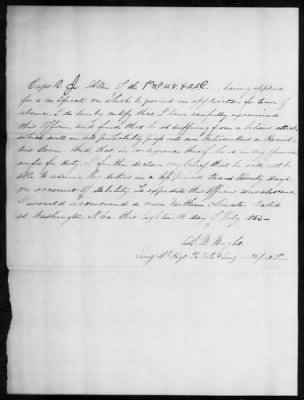 Capt R J Allen of the 1st N.C.U.V. having applied
for a certificate on which to ground an application for leave of
absence, I do hereby certify that I have carefully examined
this officer, and find that he is suffering from a bilious attack
which will in all probability pass into an Intermittent or Remittent
Fever. And that in consequence thereof he is in my opinion
unfit for duty. I further declare my belief that he will not be
able to resume his duties in a less period than twenty days
on account of debility. To expedite this officers convalescence
I would recommend a more Northern climate. Dated
at Washington N. Ca. this eighteenth day of July 1863 —
D. W. Wright
Surg.